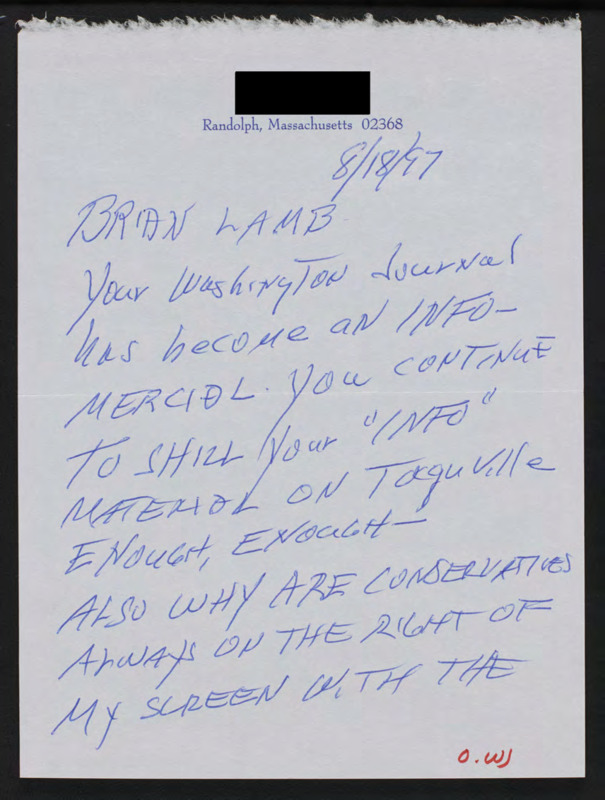 Randolph, Massachusetts 02368
8/18/97
BRIAN LAMB
Your Washington Journal
has become AN INFO-
MERCIAL. You CONTINUE
TO SHILL Your "INFO"
MATERIAL ON Toquville
ENOUGH, ENOUGH—
ALSO WHY ARE CONSERVATIVES
ALWAYS ON THE RIGHT OF
MY SCREEN WITH THE
O.WJ